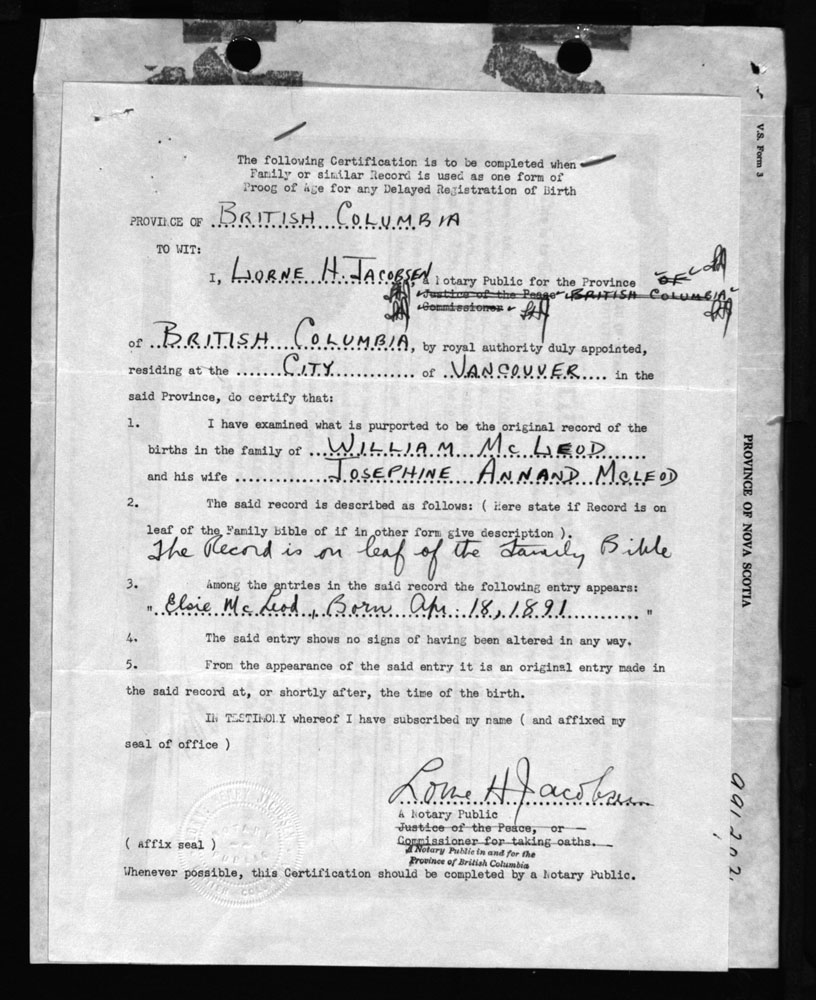 The following Certification is to be completed when
Family or similar Record is used as one form of
Proog of Age for any Delayed Registration of Birth
PROVINCE OF BRITISH COLUMBIA
TO WIT:
I, LORNE H. JACOBSEN, a Notary Public for the Province OF
Justice of the Peace BRITISH COLUMBIA
Commissioner
of BRITISH COLUMBIA, by royal authority duly appointed,
residing at the CITY of VANCOUVER in the
said Province, do certify that:
1. I have examined what is purported to be the original record of the
births in the family of WILLIAM McLEOD
and his wife JOSEPHINE ANNAND McLEOD
2. The said record is described as follows: ( Here state if Record is on
leaf of the Family Bible of if in other form give description ).
The Record is on leaf of the Family Bible
3. Among the entries in the said record the following entry appears:
" Elsie McLeod, Born Apr. 18, 1891 "
4. The said entry shows no signs of having been altered in any way.
5. From the appearance of the said entry it is an original entry made in
the said record at, or shortly after, the time of the birth.
IN TESTIMONY whereof I have subscribed my name ( and affixed my
seal of office )
Lorne H Jacobsen
A Notary Public
Justice of the Peace, or
Commissioner for taking oaths.
A Notary Public in and for the
Province of British Columbia
( Affix seal )
Whenever possible, this Certification should be completed by a Notary Public.
V.S. Form 3
PROVINCE OF NOVA SCOTIA
991202